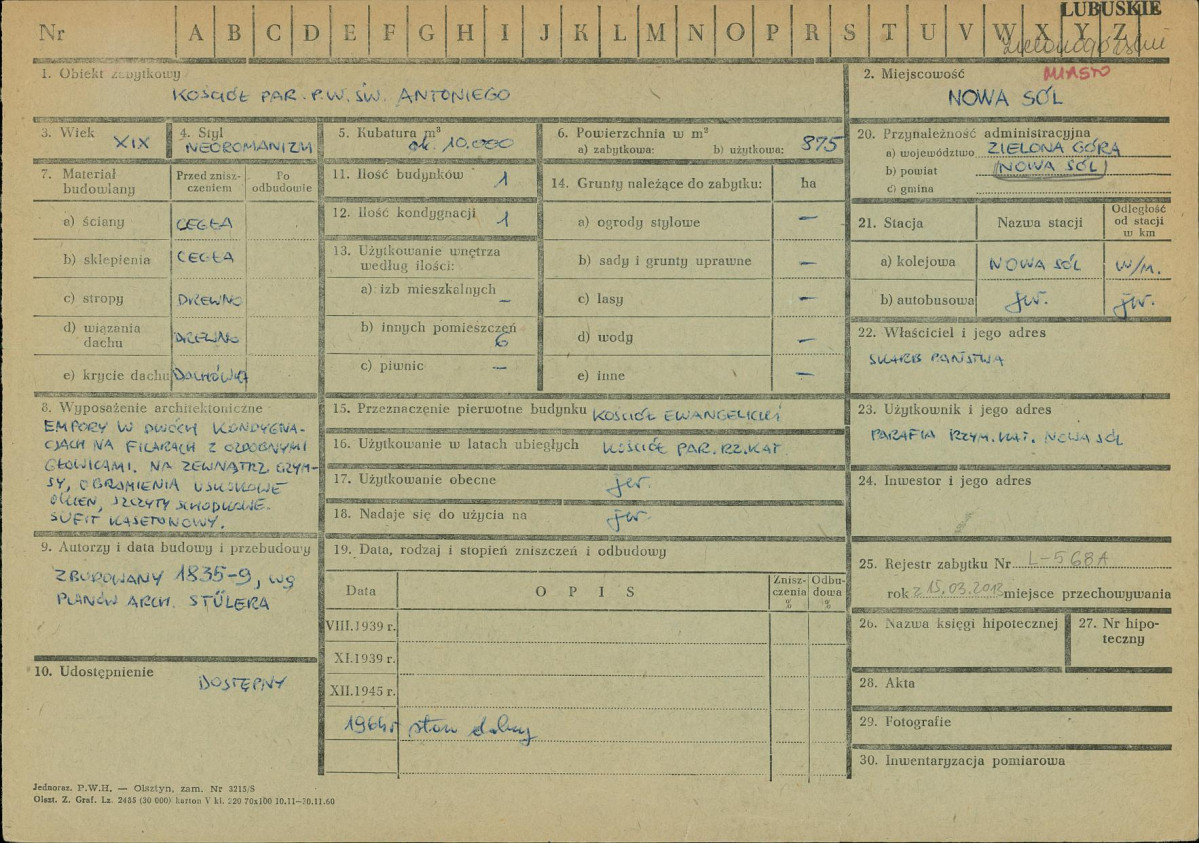 LUBUSKIE
Nr A B C D E F G H I J K L M N O P R S T U V W X Y Z
zielonogórskie
1. Obiekt zabytkowy
KOŚCIÓŁ PAR. P.W. ŚW. ANTONIEGO
2. Miejscowość
MIASTO
NOWA SÓL
3. Wiek XIX
4. Styl
NEOROMANIZM
5. Kubatura m³
ok. 10.000
6. Powierzchnia w m²
a) zabytkowa: b) użytkowa: 875
7. Materiał budowlany
Przed zniszczeniem
Po odbudowie
a) ściany CEGŁA
b) sklepienia CEGŁA
c) stropy DREWNO
d) wiązania dachu DREWNO
e) krycie dachu DACHÓWKA
8. Wyposażenie architektoniczne
EMPORY W DWÓCH KONDYGNA-
CJACH NA FILARACH Z OZDOBNYMI
GŁOWICAMI. NA ZEWNĄTRZ GZYM-
SY, OBRAMIENIA USKOKOWE
OKIEN, SZCZYTY SCHODKOWE.
SUFIT KASETONOWY.
9. Autorzy i data budowy i przebudowy
ZBUDOWANY 1835-9, wg
PLANÓW ARCH. STÜLERA
10. Udostępnienie
DOSTĘPNY
11. Ilość budynków 1
12. Ilość kondygnacji 1
13. Użytkowanie wnętrza
według ilości:
a) izb mieszkalnych —
b) innych pomieszczeń 6
c) piwnic —
14. Grunty należące do zabytku: ha
a) ogrody stylowe —
b) sady i grunty uprawne —
c) lasy —
d) wody —
e) inne —
15. Przeznaczenie pierwotne budynku KOŚCIÓŁ EWANGELICKI
16. Użytkowanie w latach ubiegłych KOŚCIÓŁ PAR. RZ. KAT
17. Użytkowanie obecne jw.
18. Nadaje się do użycia na jw.
19. Data, rodzaj i stopień zniszczeń i odbudowy
Data OPIS Zniszczenia % Odbudowa %
VIII.1939 r.
XI.1939 r.
XII.1945 r.
1964 r stan dobry
20. Przynależność administracyjna
a) województwo ZIELONA GÓRA
b) powiat (NOWA SÓL)
c) gmina
21. Stacja Nazwa stacji Odległość od stacji w km
a) kolejowa NOWA SÓL W/M.
b) autobusowa jw. jw.
22. Właściciel i jego adres
SKARB PAŃSTWA
23. Użytkownik i jego adres
PARAFIA RZYM. KAT. NOWA SÓL
24. Inwestor i jego adres
25. Rejestr zabytku Nr L-568A
rok z 15.03.2013 miejsce przechowywania
26. Nazwa księgi hipotecznej
27. Nr hipo-
teczny
28. Akta
29. Fotografie
30. Inwentaryzacja pomiarowa
Jednoraz. P.W.H. — Olsztyn, zam. Nr 3215/S
Olszt. Z. Graf. Lz. 2435 (30 000) karton V kl. 220 70x100 10.11—30.11.60